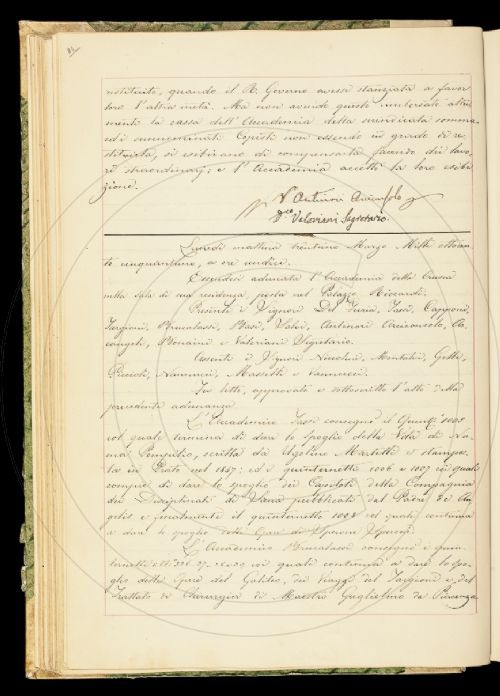 restituite, quando il R. Governo avesse stanziata a favor
loro l'altra metà. Ma non avendo questi rimborsati altri-
menti la cassa dell'Accademia della surriferita somma
ed i summentovati Copisti non essendo in grado di re-
stituirla, si esibirono di compensarla facendo dei lavo-
ri straordinarj; e l'Accademia accettò la loro esibi-
zione.
V° Antinori Arciconsolo
D.co Valeriani Segretario.
Lunedì mattina trentuno Marzo Mille ottocen-
to cinquantuno, a ore undici.
Essendosi adunata l'Accademia della Crusca
nella sala di sua residenza, posta nel Palazzo Riccardi.
Presenti i Signori Del Furia, Tassi, Capponi,
Targioni, Brucalassi, Basi, Valeri, Antinori Arciconsolo, Ar-
cangeli, Bonaini e Valeriani Segretario.
Assenti i Signori Niccolini, Montalvi, Gelli,
Puccioti, Nannucci, Masselli e Vannucci.
Fu letto, approvato e sottoscritto l'atto della
precedente adunanza.
L'Accademico Tassi consegnò il Quint.° 1005
col quale termina di dare lo spoglio della Vita di Nu-
ma Pompilio, scritta da Agoline Martelli e stampa-
ta in Prato nel 1847; ed i quinternetti 1006 e 1007 coi quali
compie di dare lo spoglio dei Capitoli della Compagnia
dei Disciplinati di Siena pubblicati dal Padre De An-
gelis e finalmente il quinternetto 1008 col quale continua
a dare lo spoglio delle Opere di Sperone Speroni.
L'Accademico Brucalassi consegnò i quin-
ternetti 336. 37. 38 e 39 coi quali continua a dare lo spo-
glio delle Opere del Galileo, dei Viaggi del Targioni e del
Trattato di Chirurgia di Maestro Guglielmo da Piacenza